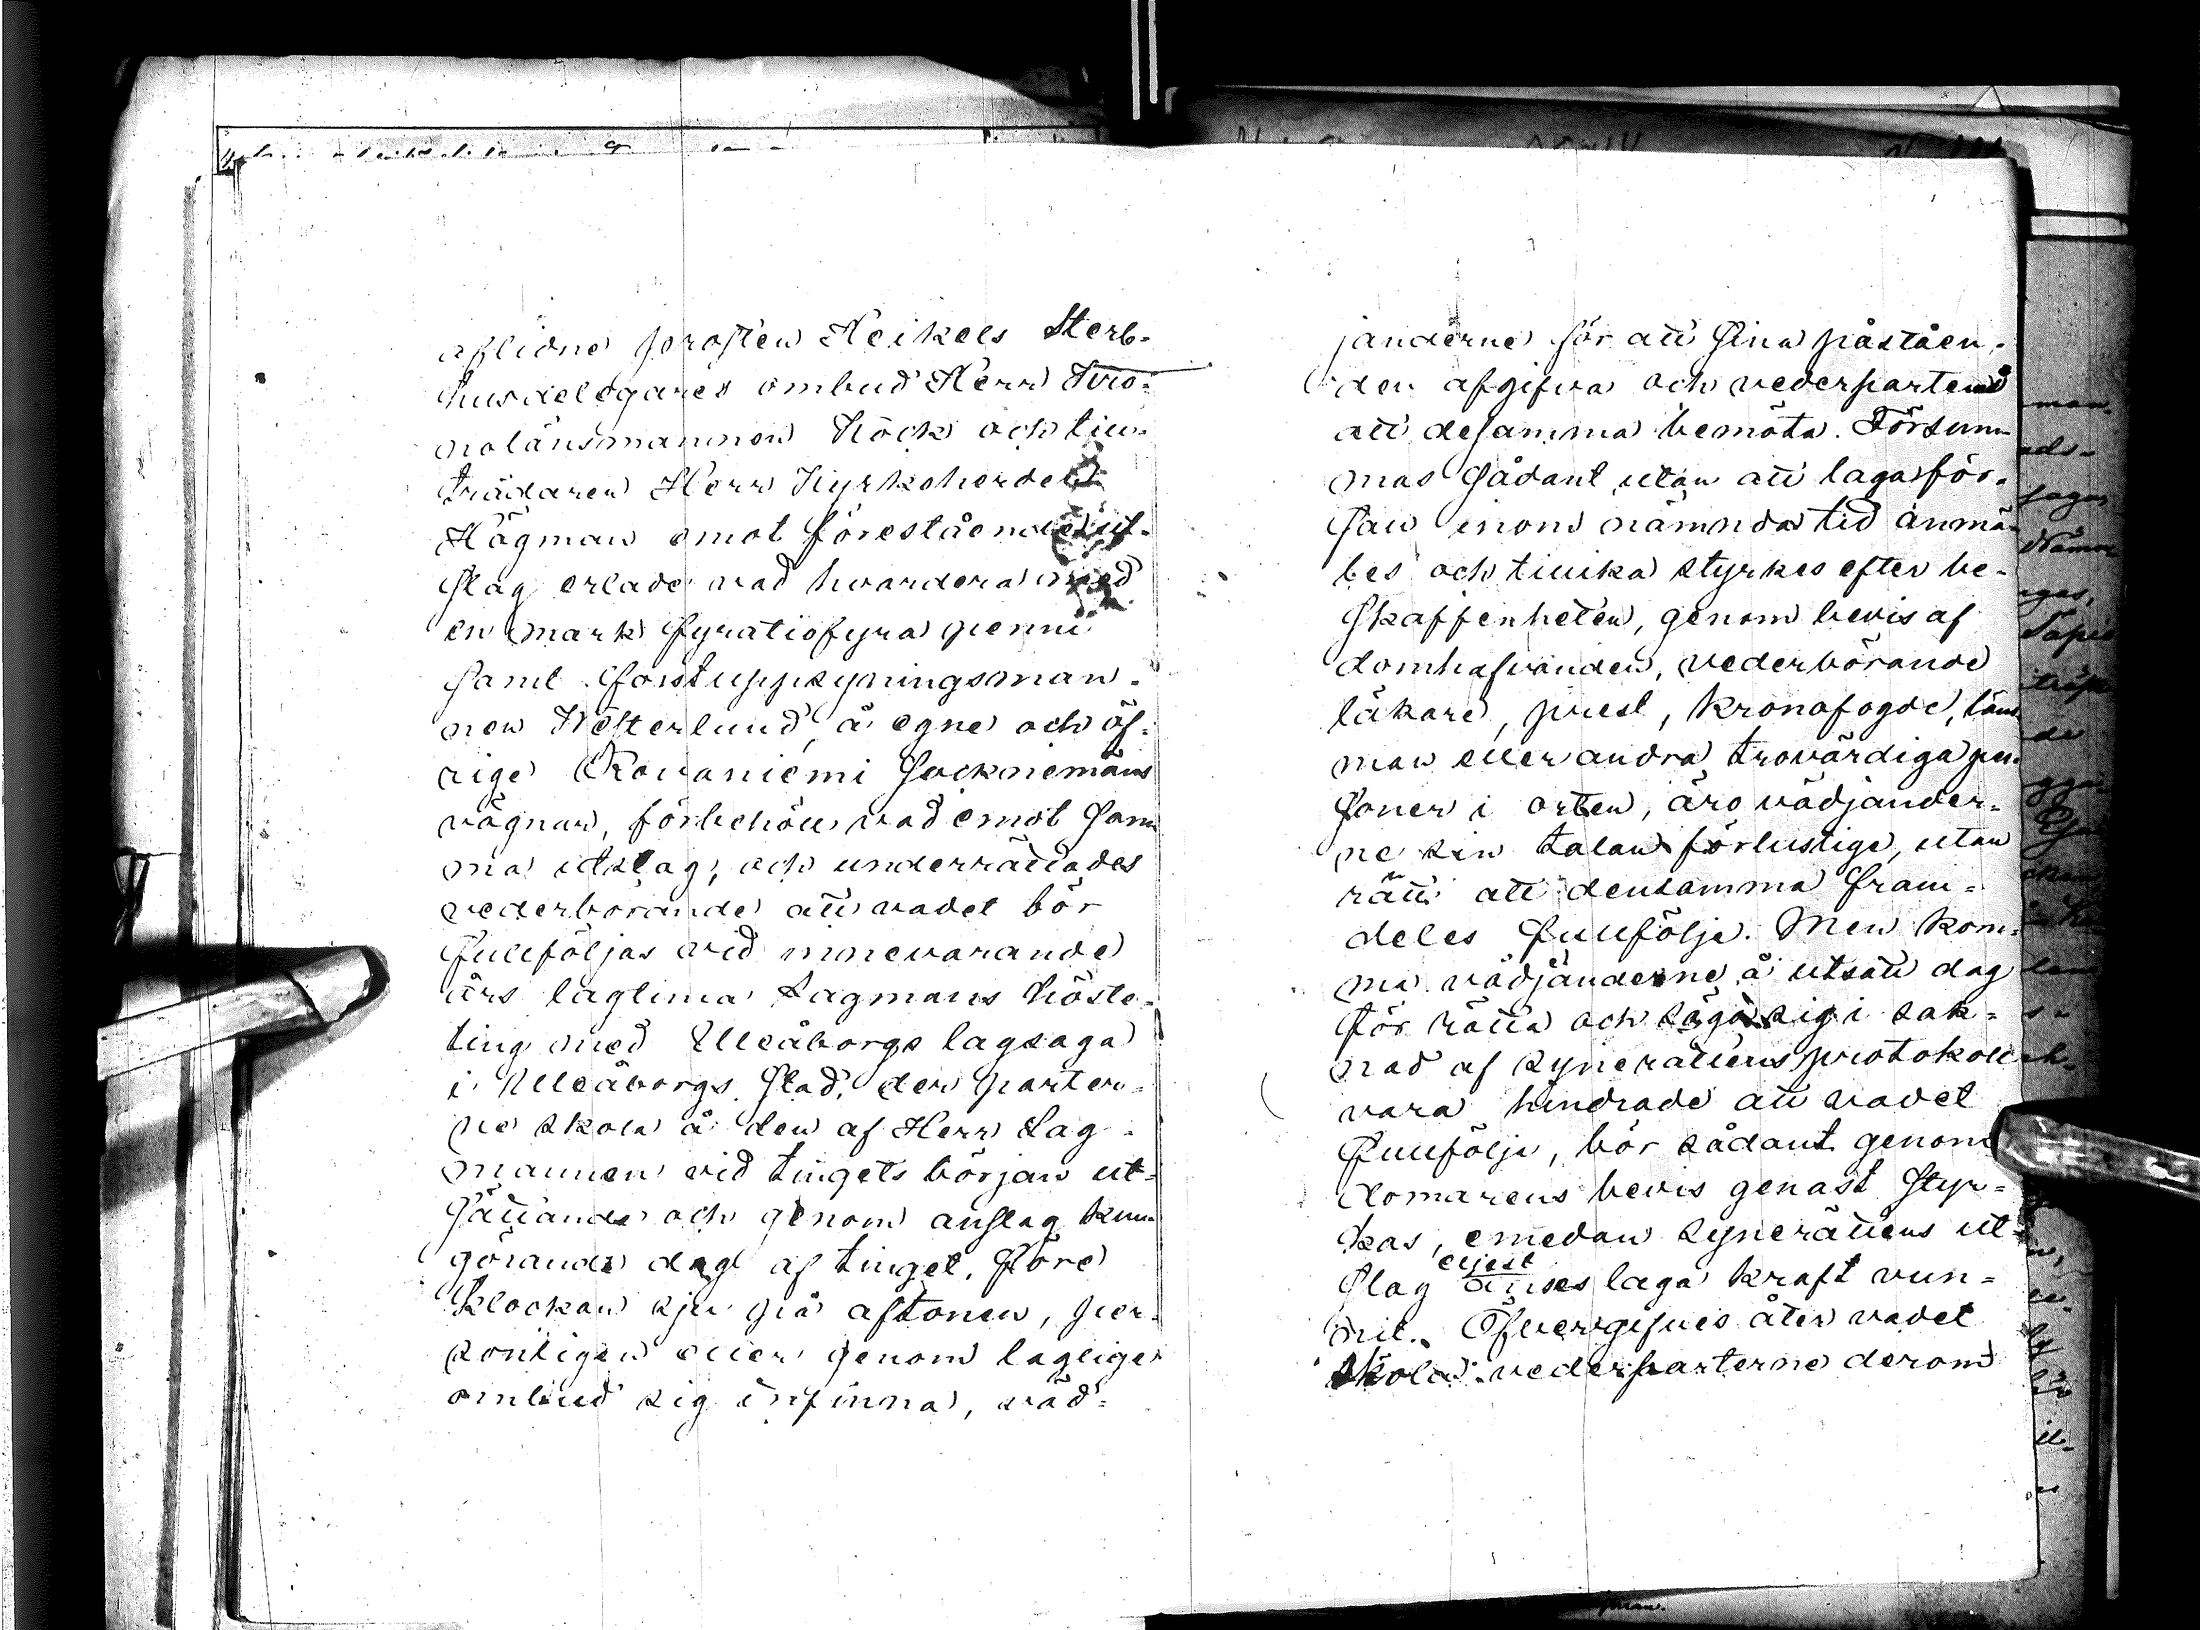 aflidne prosten Heikels Sterb-
husdelegares ombud Herr Kro-
nolänsmannen Höck och till-
trädaren Herr Kyrkoherden
Högman emot förestående ut-
slag erlade vad hvardera med
en mark fyratiofyra penni
samt forstuppsyningsman-
nen Westerlund, å egne och öf-
rige Rovaniemi sockniemäns
vägnar, förbehöll vad emot sam-
ma utslag; och underrättades
vederbörande att vadet bör
fullföljas vid innevarande
års lagtima Lagmans höste-
ting med Uleåborgs lagsaga
i Uleåborgs stad, der parter-
ne skola å den af Herr Lag-
mannen vid tingets början ut-
sättande och genom anslag kun-
görande dag af tinget, före
klockan sju på aftonen, per-
sonligen eller genom laglige
ombud sig infinna, väd-
janderne för att sina påståen-
den afgifva och vederpartens
att desamma bemöta. Försum-
mas sådant utan att laga för-
fall inom nämnda tid anmä-
les och tillika styrkes efter be-
skaffenheten, genom bevis af
domhafvanden, vederbörande
läkare, prest, kronofogde, läns-
man eller andra trovärdiga per-
soner i orten, äro vädjander-
ne sin talan förlustige, utan
rätt att densamma fram-
deles fullfölja. Men kom-
ma vädjanderne å utsatt dag
för rätta och säga sig i sak-
nad af synerättens protokoll
vara hindrade att vadet
fullfölja, bör sådant genom
domarens bevis genast styr-
kas, emedan synerättens ut-
slag eljest anses laga kraft vun-
nit. Öfvergifves åter vadet
skola vederparterne derom